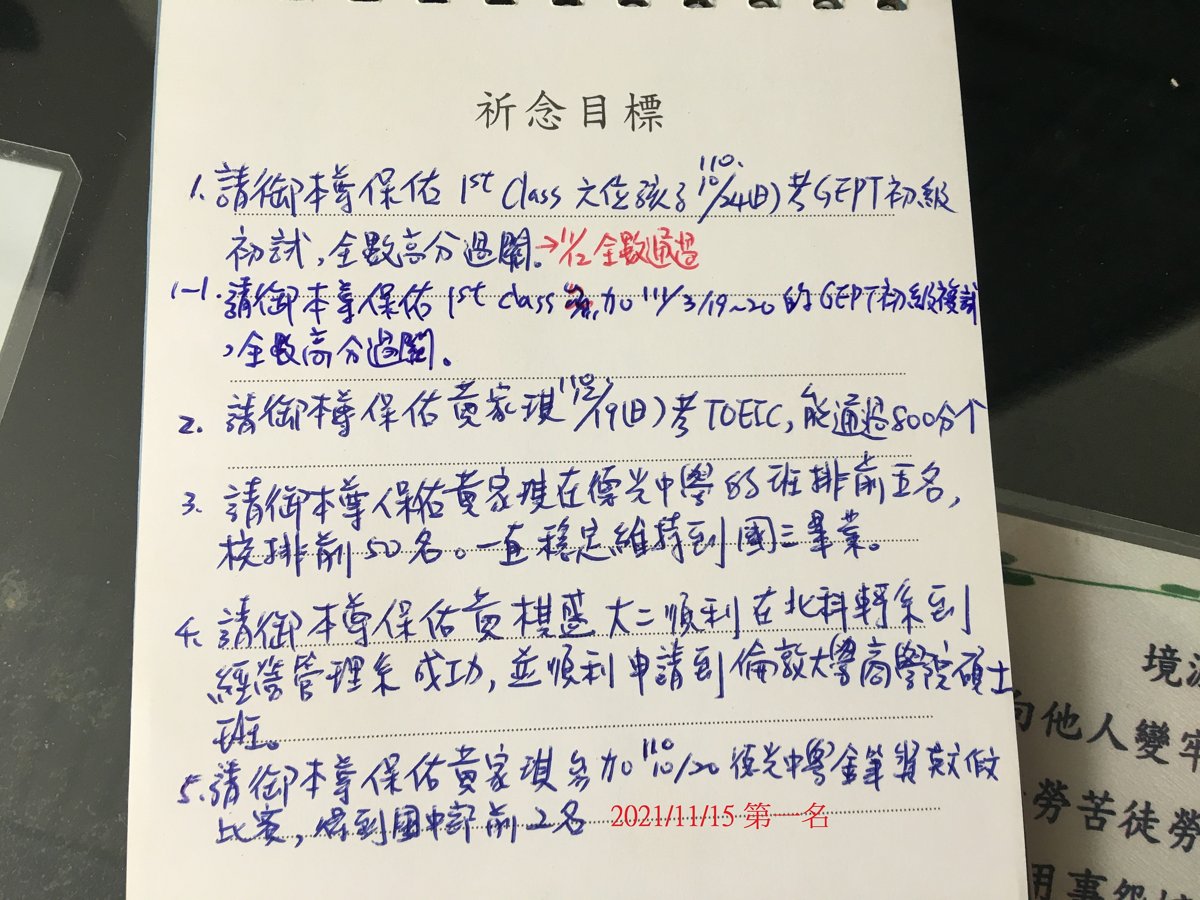 祈念目標
1. 請御本尊保佑 1st Class 六位孩子 110. 10/24(日)考GEPT初級
初試,全數高分過關。→11/12 全數通過
1-1. 請御本尊保佑 1st class 參加 111/3/19~20 的GEPT初級複試
,全數高分過關。
2. 請御本尊保佑黃家琪 110. 12/19(日)考TOEIC,能通過800分个
3. 請御本尊保佑黃家琪在德光中學的班排前五名,
校排前50名。一直穩定維持到國三畢業。
4. 請御本尊保佑黃棋盛大二順利在北科轉系到
經營管理系成功,並順利申請到倫敦大學商學院碩士
班。
5. 請御本尊保佑黃家琪參加 110 10/20 德光中學金筆獎英文作文
比賽,得到國中部前2名 2021/11/15 第一名
境
向他人變牢
勞苦徒勞
用事怨